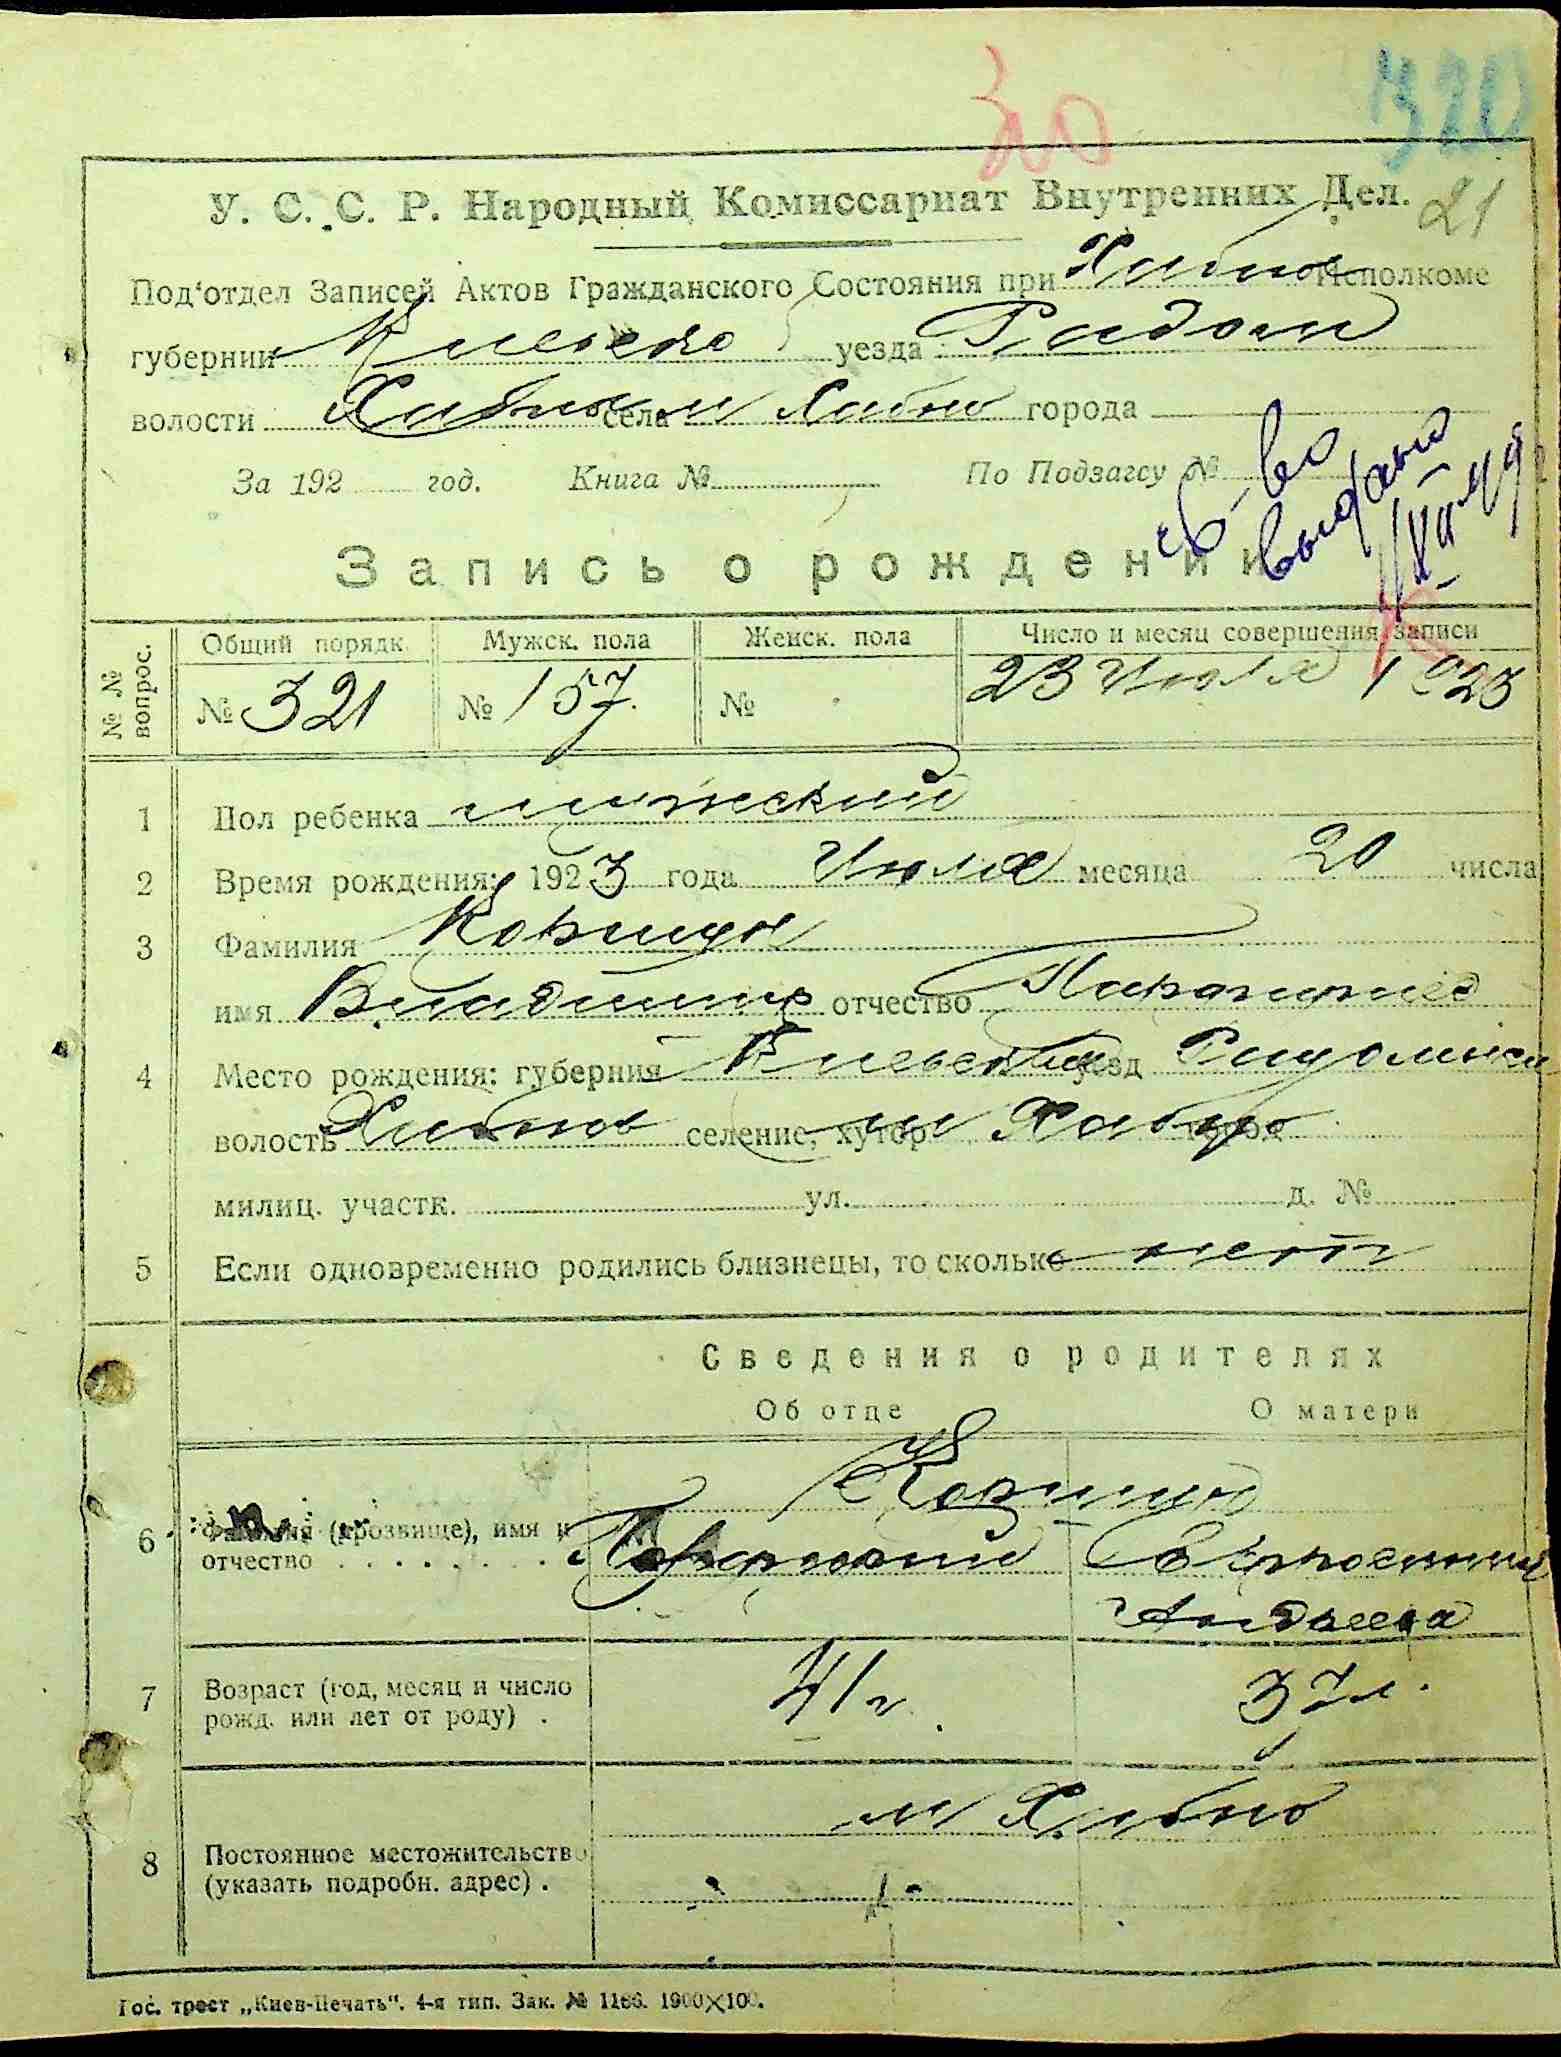 30 320
У. С. С. Р. Народный Комиссариат Внутренних Дел. 21
Под‘отдел Записей Актов Гражданского Состояния при Хабно Исполкоме
губернии уезда Радом
волости села Хабно города
За 192 год. Книга № По Подзагсу №
св-во
выдано
Запись о рождении
№ № вопрос.
Общий порядк. Мужск. пола Женск. пола Число и месяц совершения записи
№ 321 № 157. № 23 Июля 1923
1 Пол ребенка мужеский
2 Время рождения: 1923 года Июля месяца 20 числа
3 Фамилия Коршун
имя Владимир отчество
4 Место рождения: губерния Киевская уезд
волость селение, хутор м Хабно город
милиц. участк. ул. д. №
5 Если одновременно родились близнецы, то сколько нет
Сведения о родителях
Об отце О матери
Коршун
6 Фамилия (прозвище), имя и
отчество
Андреева
7 Возраст (год, месяц и число
рожд. или лет от роду) . 41 г. 37 л.
м Хабно
8 Постоянное местожительство
(указать подробн. адрес) .
Гос. трест „Киев-Печать“. 4-я тип. Зак. № 1186. 1900×100.